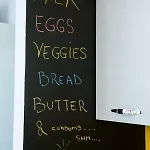 MILK
EGGS
VEGGIES
BREAD
BUTTER
& CONDOMS....
SHH....